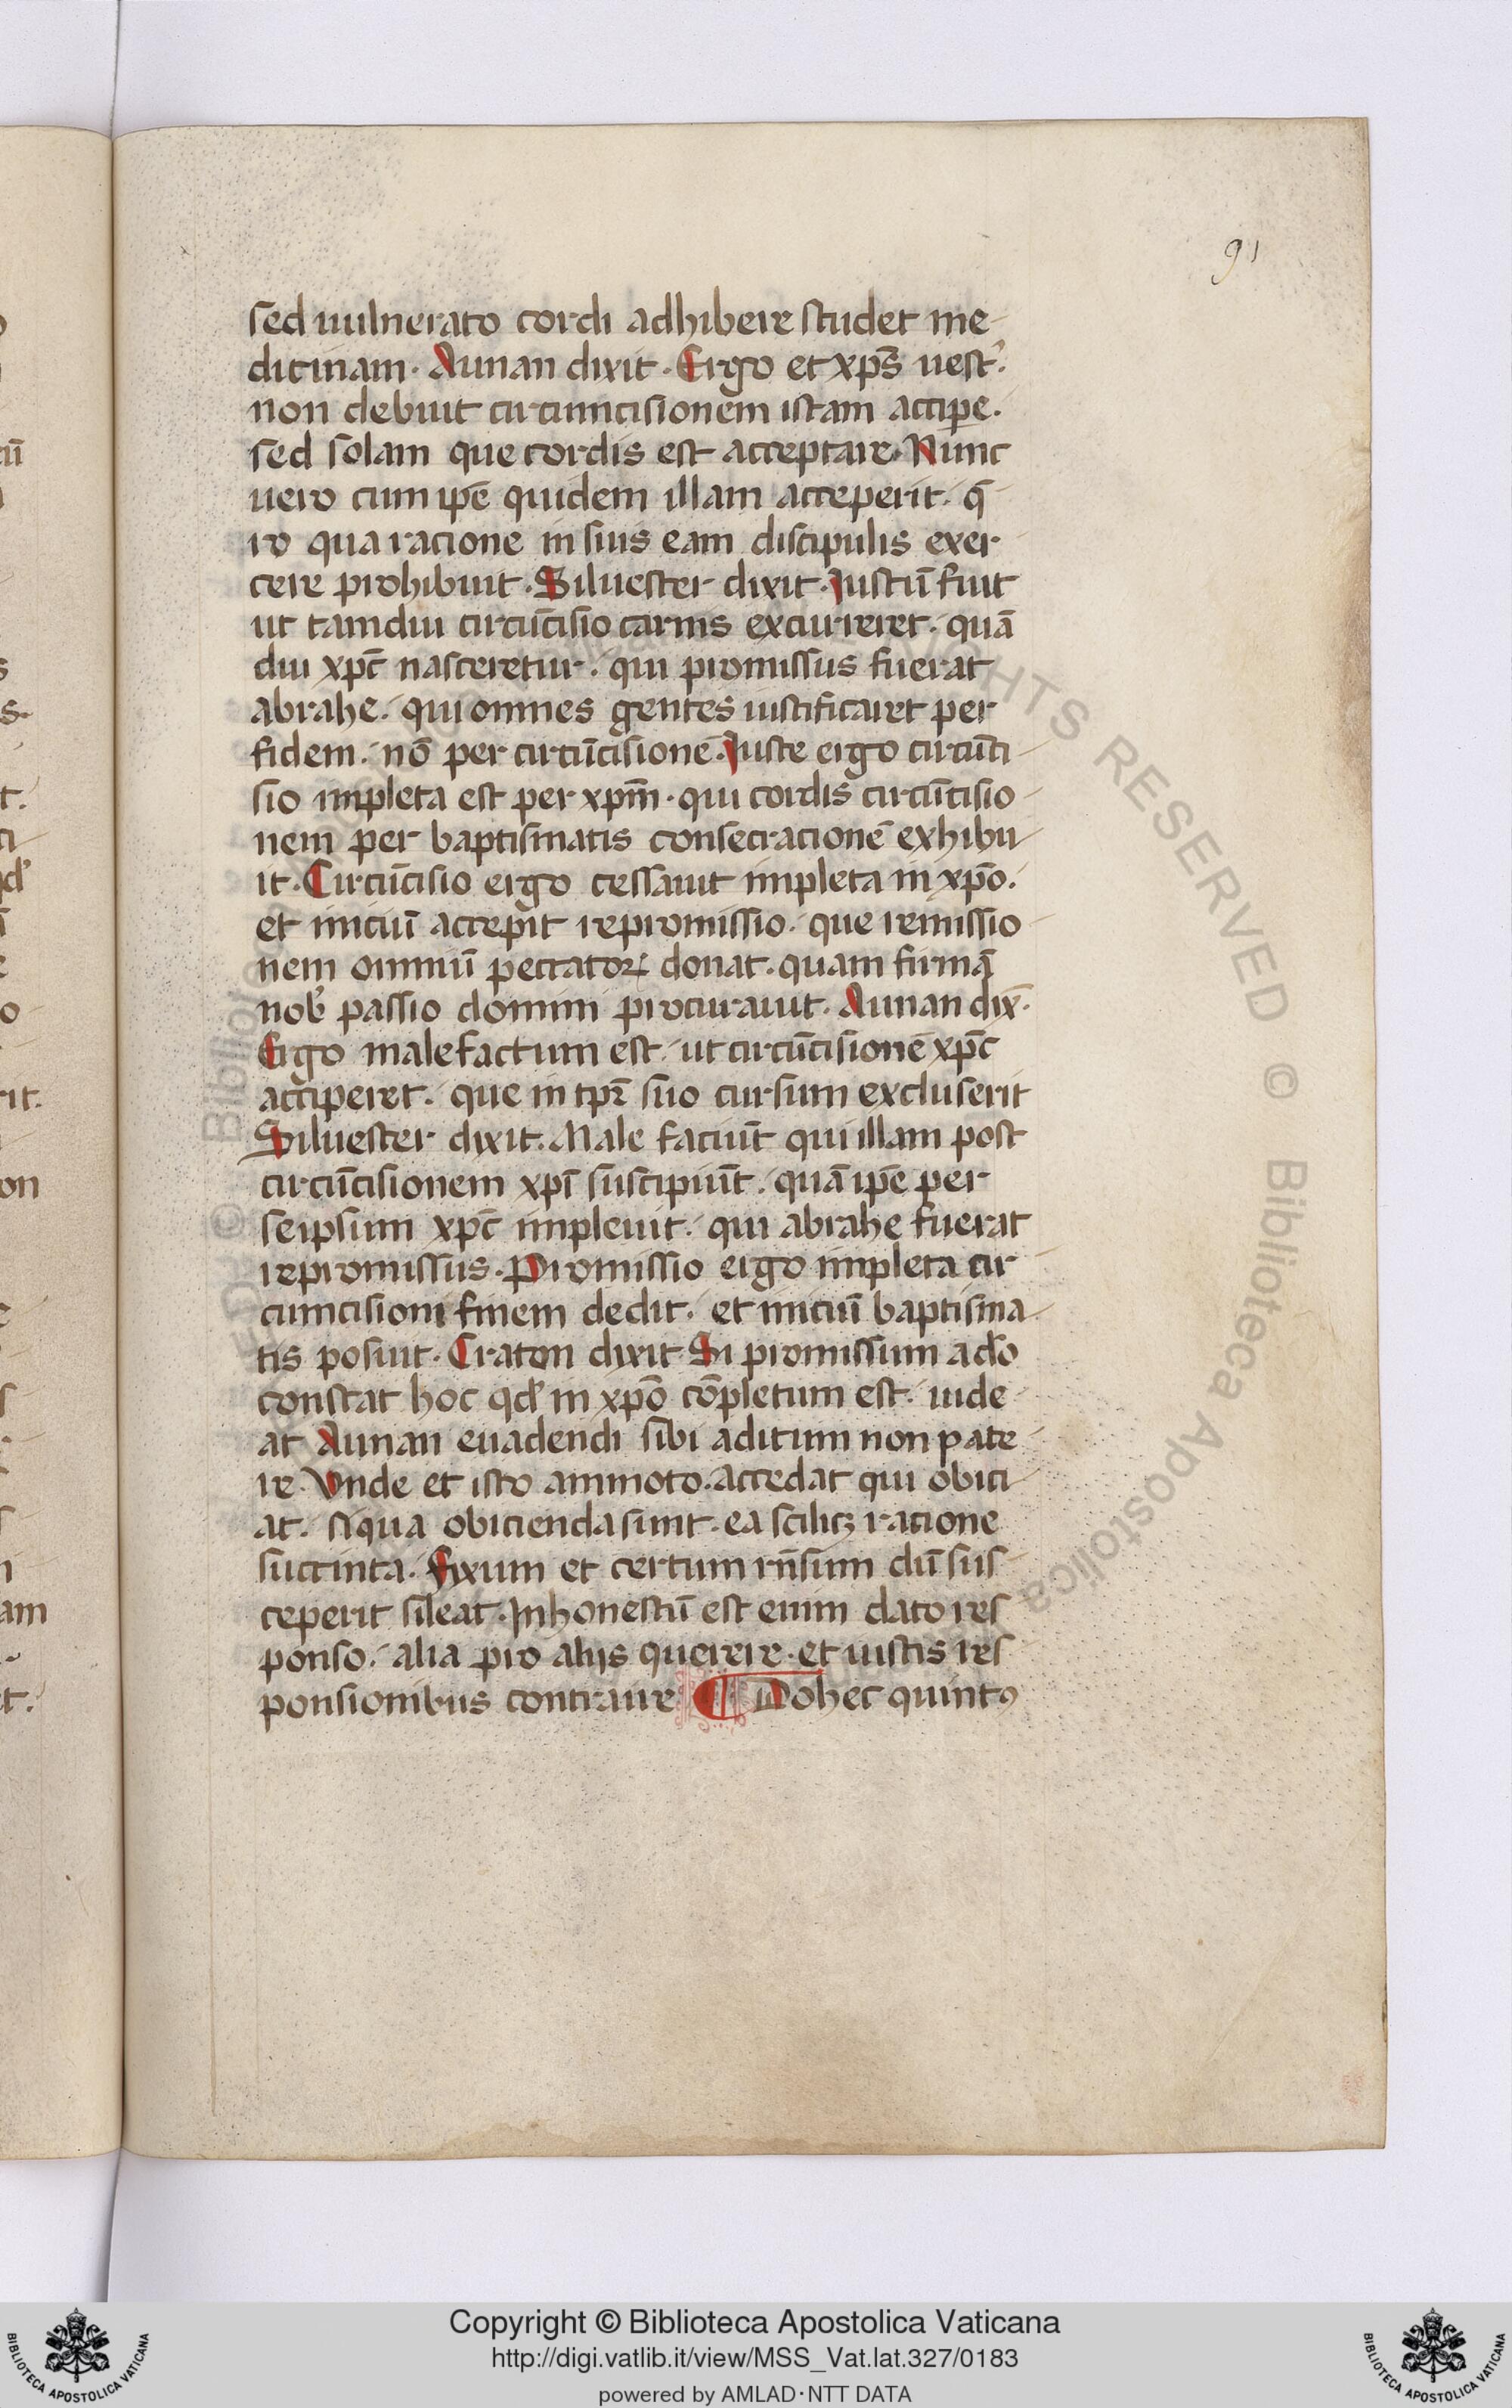 91
sed uulnerato cordi adhibere studet me-
dicinam. Aunan dixit. Ergo et xp̄s uest'.
non debuit circumcisionem istam accip̲e.
sed solam que cordis est acceptare. Nunc
uero cum ip̄e quidem illam acceperit. q̄-
ro qua racione in suis eam discipulis exer-
cere prohibuit. Siluester dixit. Justū fuit
ut tamdiu circūcisio carnis excurreret. quā
diu xp̄c nasceretur. qui promissus fuerat
abrahe. qui omnes gentes iustificaret per
fidem. nō per circūcisionē. Juste ergo circūci-
sio impleta est per xp̄m. qui cordis circūcisio-
nem per baptismatis consecracionē exhibu-
it. Circūcisio ergo cessauit impleta in xp̄o.
et iniciū accepit repromissio. que remissio-
nem omniū peccatoꝝ donat. quam firmā
nob' passio domini procurauit. Aunan dix̄.
Ergo malefactum est. ut circūcisionē xp̄c
acciperet. que in tp̄r suo cursum excluserit
Siluester dixit. Male faciūt qui illam post
circūcisionem xp̄i suscipiūt. quā ip̄e per
seipsum xp̄c impleuit. qui abrahe fuerat
repromissus. Promissio ergo impleta cir-
cumcisioni finem dedit. et iniciū baptisma-
tis posuit. Craton dixit. Si promissum a dō
constat hoc qd' in xp̄o cōpletum est. uide-
at Aunan euadendi sibi aditum non pate-
re. Vnde et isto ammoto. accedat qui obici-
at. siqua obicienda sunt. ea scilicꝫ racione
succinta. Fixum et certum rn̄sum dū sus-
ceperit sileat. Inhonestū est enim dato res-
ponso. alia pro alijs querere. et iustis res-
ponsionibus contraire. ¶ Ad hec quintꝰ
Copyright © Biblioteca Apostolica Vaticana
http://digi.vatlib.it/view/MSS_Vat.lat.327/0183
powered by AMLAD·NTT DATA